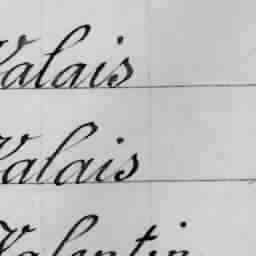 Valais
Valais
Valentin